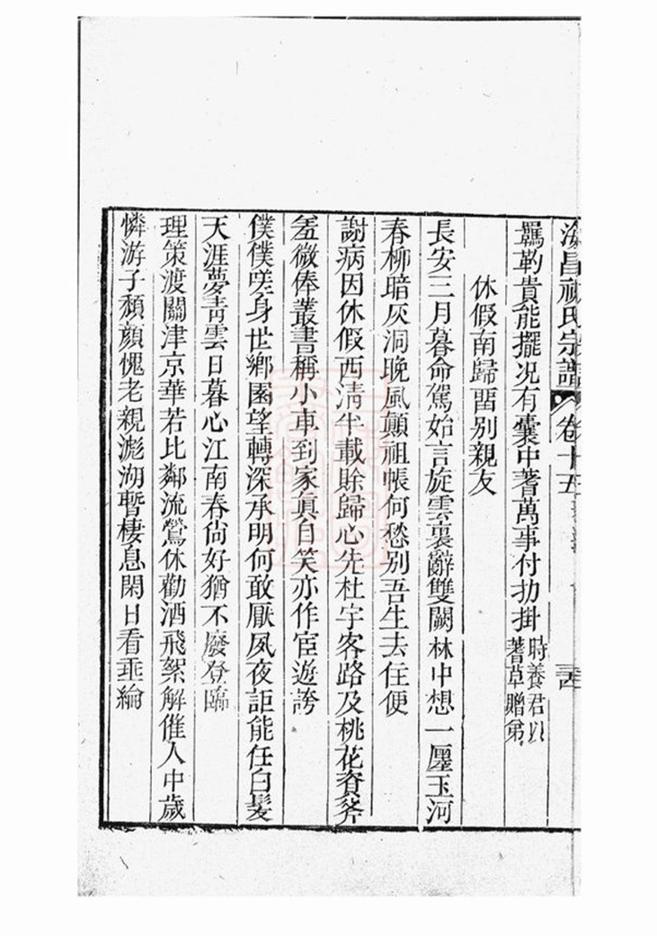 海昌祝氏宗譜 卷十五
羈靮貴能擺况有囊中蓍萬事付扐掛 時養君以蓍草贈弟
休假南歸畱別親友
長安三月暮命駕始言旋雲裏辭雙闕林中想一廛玉河
春柳暗灰洞晚風顛祖帳何愁別吾生去住便
謝病因休假西清半載賒歸心先杜宇客路及桃花資斧
羞微俸叢書稱小車到家真自笑亦作宦遊誇
僕僕嗟身世鄉園望轉深承明何敢厭夙夜詎能任白髮
天涯夢青雲日暮心江南春尙好猶不廢登臨
理策渡關津京華若比鄰流鶯休勸酒飛絮解催人中歲
憐游子頳顏愧老親滮湖暫棲息閑日看垂綸